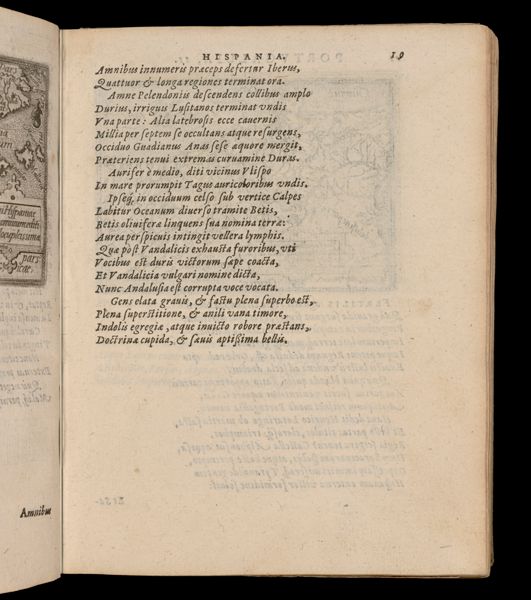 HISPANIA. 19
Amnibus innumeris præceps defertur Iberus,
Quattuor & longa regiones terminat ora.
Amne Pelendoniis descendens collibus amplo
Durius, irriguis Lusitanos terminat vndis
Vna parte: Alia latebrosis ecce cauernis
Millia per septem se occultans atque resurgens,
Occiduo Guadianus Anas sese æquore mergit,
Præteriens tenui extremas curuamine Duras.
Aurifer è medio, diti vicinus Vlispo
In mare prorumpit Tagus auricoloribus vndis.
Ipseq́; in occiduum celso sub vertice Calpes
Labitur Oceanum diuerso tramite Betis,
Betis oliuifera linquens sua nomina terræ:
Aurea perspicuis intingit vellera lymphis.
Quæ post Vandalicis exhausta furoribus, vti
Vocibus est duris victorum sæpe coacta,
Et Vandalicia vulgari nomine dicta,
Nunc Andalusia est corrupta voce vocata.
Gens elata grauis, & fastu plena superbo est,
Plena superstitione, & anili vana timore,
Indolis egregiæ, atque inuicto robore præstans,
Doctrinæ cupida, & sæuis aptißima bellis.
Amnibus